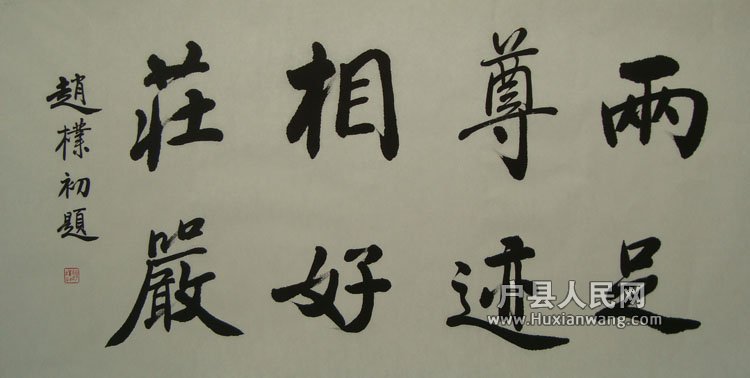 兩足
尊迹
相好
莊嚴
趙樸初題
户县人民网
www.Huxianwang.com